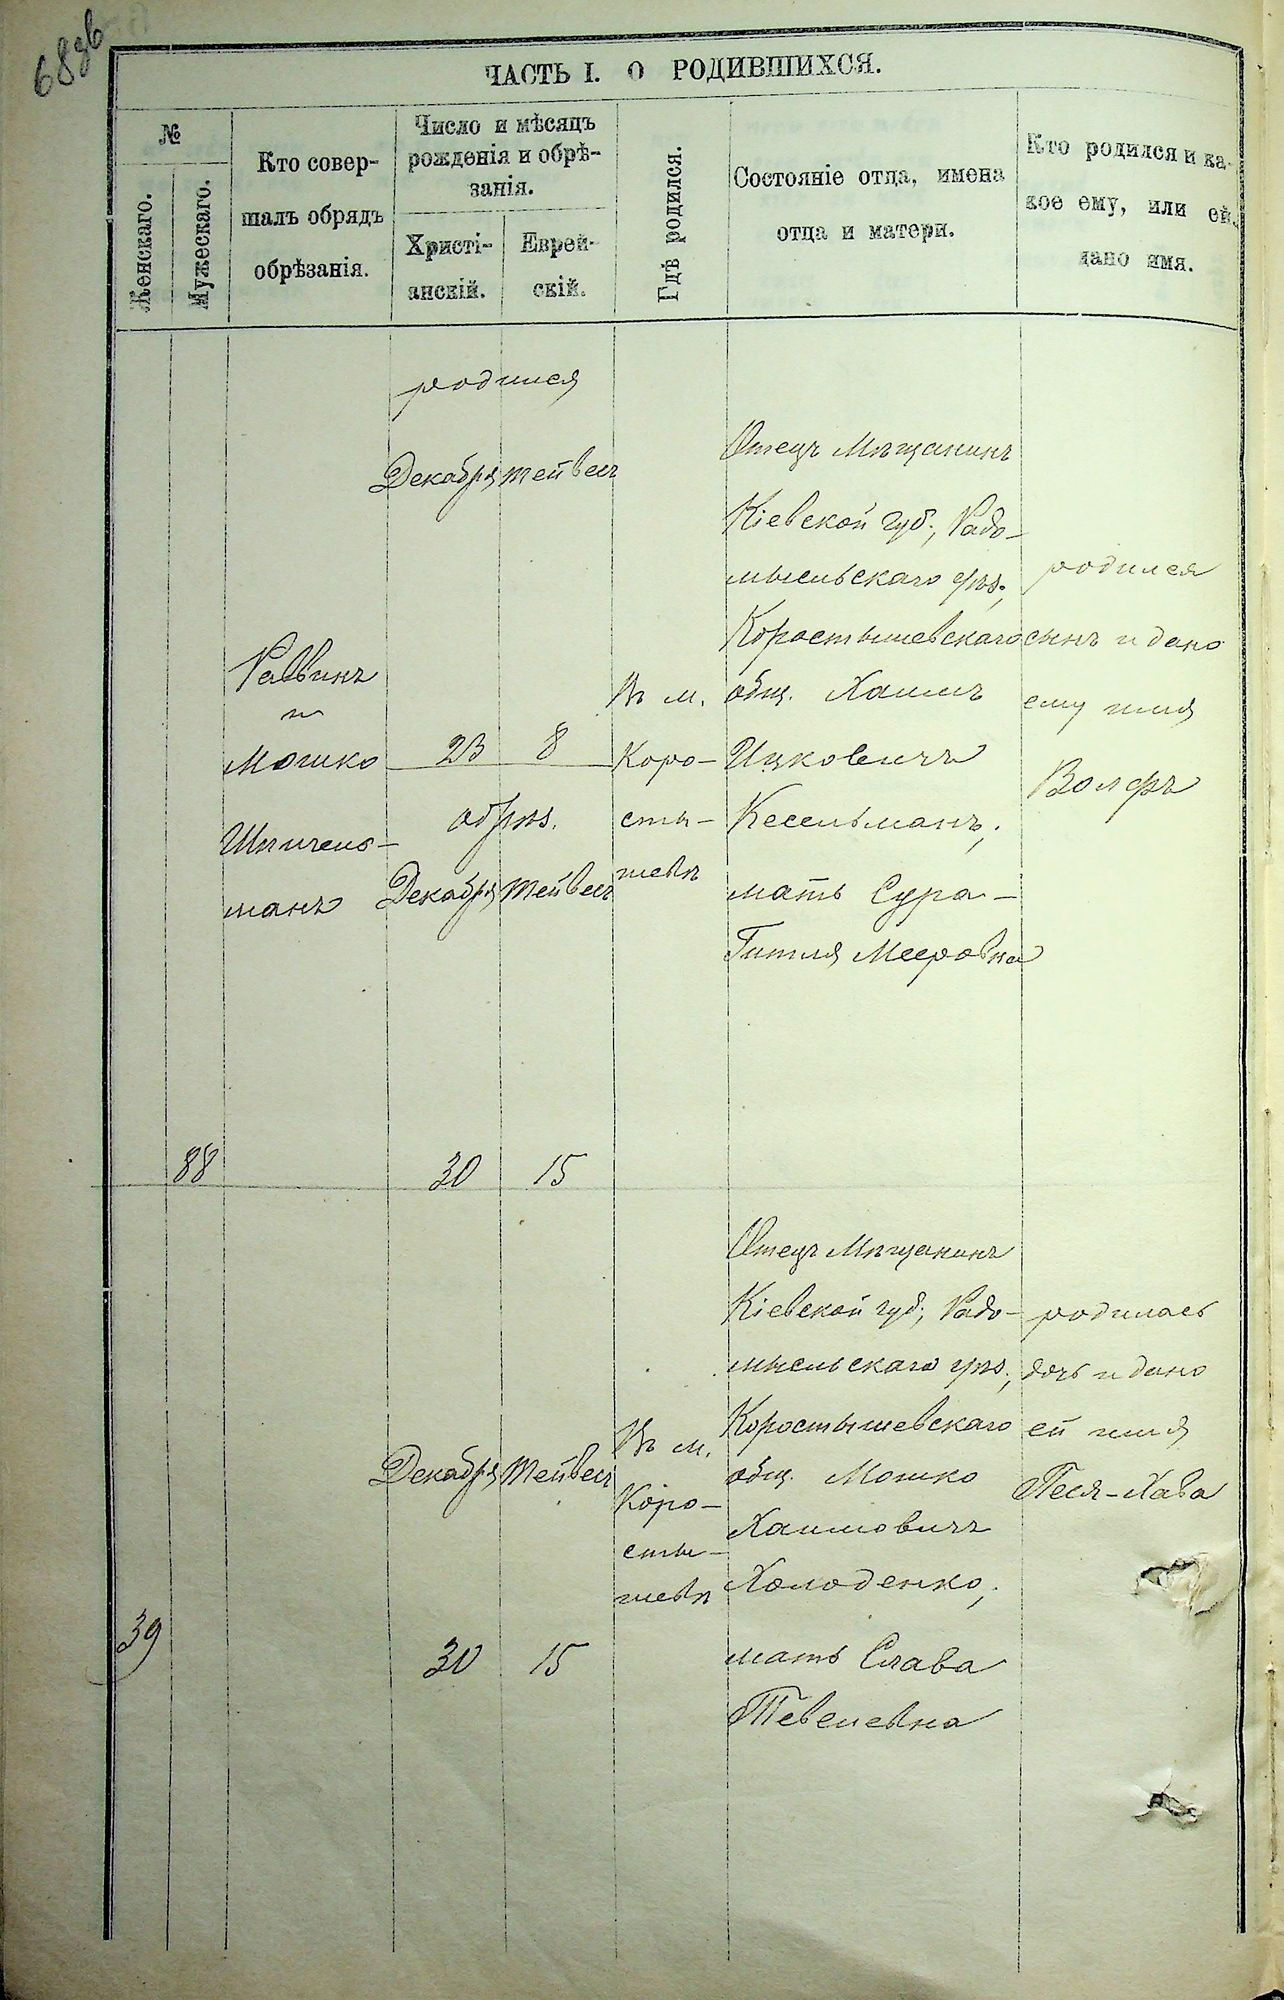 68об
ЧАСТЬ I. О РОДИВШИХСЯ.
№
Женскаго.
Мужескаго.
Кто совер-
шалъ обрядъ
обрѣзанія.
Число и мѣсяцъ
рожденія и обрѣ-
занія.
Христі-
анскій.
Еврей-
скій.
Гдѣ родился.
Состояніе отца, имена
отца и матери.
Кто родился и ка-
кое ему, или ей,
дано имя.
88
Раввинъ
и
Мошко
Шпичень-
манъ
родился
Декабря Тейвесъ
23 8
обрѣз.
Декабря Тейвесъ
30 15
Въ м.
Коро-
сты-
шевѣ
Отецъ Мѣщанинъ
Кіевской губ., Радо-
мысльскаго уѣз.,
Коростышевскаго
общ. Хаимъ
Ицковичъ
Кесельманъ,
мать Сура-
Гитля Мееровна
родился
сынъ и дано
ему имя
Волфъ
39
Декабря Тейвесъ
30 15
Въ м.
Коро-
сты-
шевѣ
Отецъ Мѣщанинъ
Кіевской губ., Радо-
мысльскаго уѣз.,
Коростышевскаго
общ. Мошко
Хаимовичъ
Холоденко,
мать Слава
Тевелевна
родилась
дочь и дано
ей имя
Песя-Хава